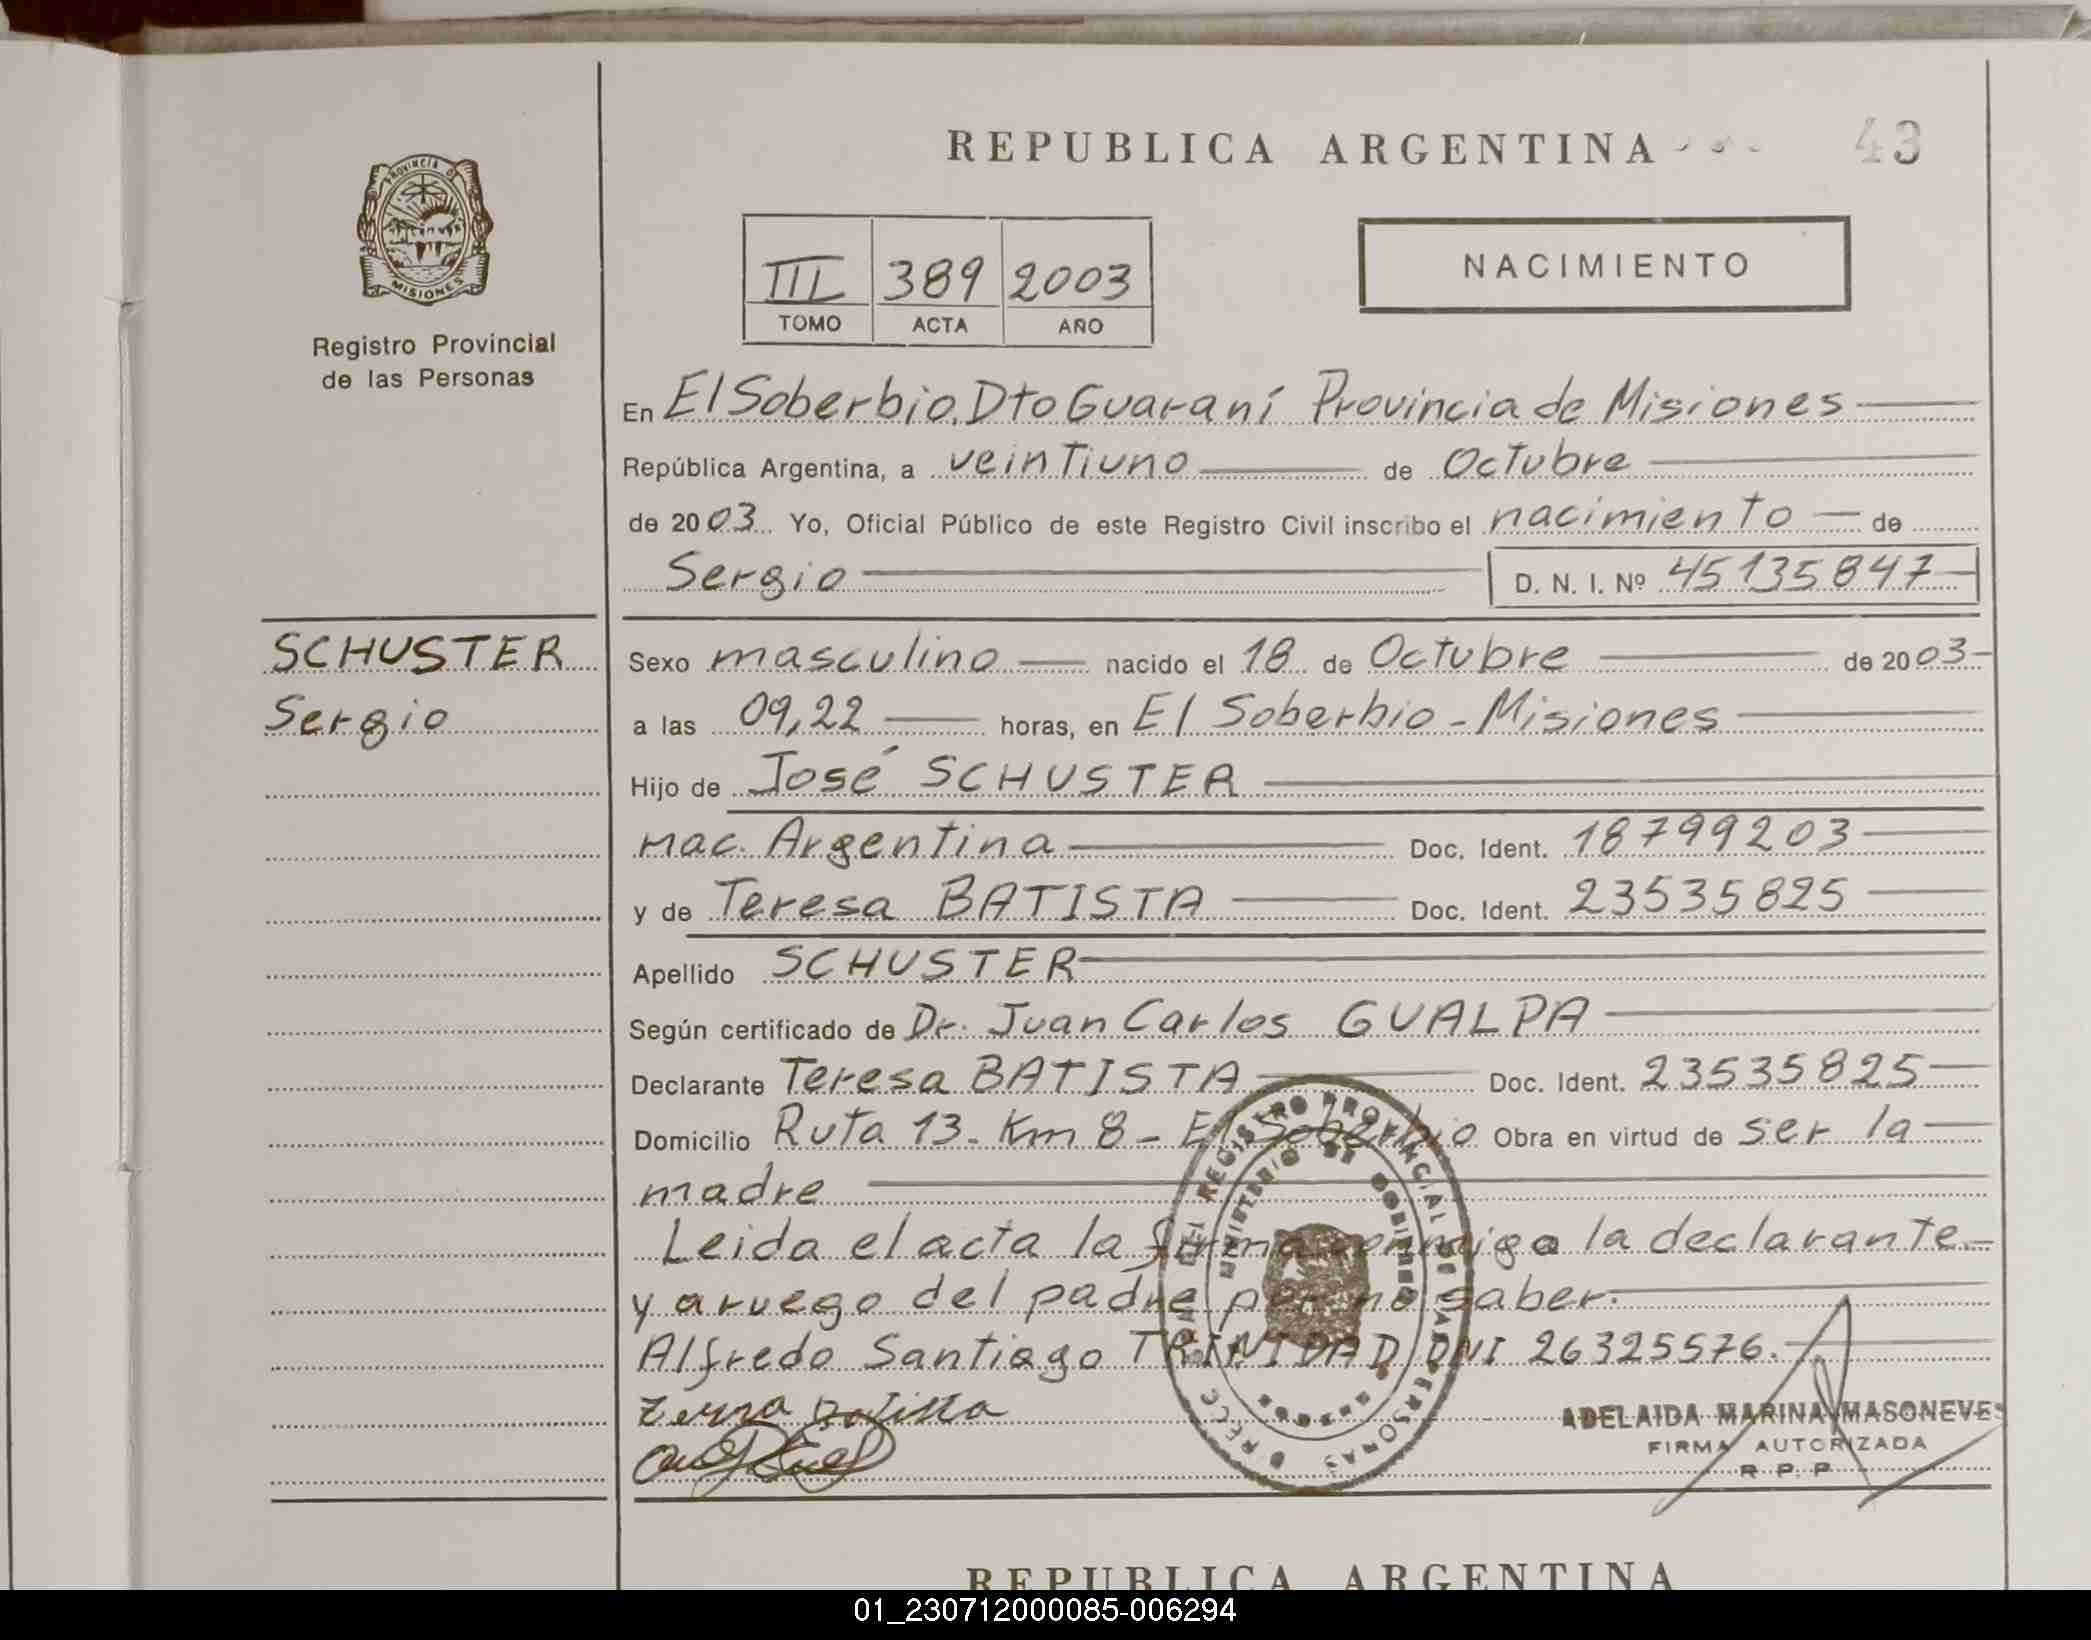 REPUBLICA ARGENTINA
43
PROVINCIA DE
MISIONES
Registro Provincial
de las Personas
III 389 2003
TOMO ACTA AÑO
NACIMIENTO
En El Soberbio, Dto Guaraní Provincia de Misiones
República Argentina, a veintiuno de Octubre
de 2003 Yo, Oficial Público de este Registro Civil inscribo el nacimiento de
Sergio D. N. I. Nº 45135847
SCHUSTER
Sergio
Sexo masculino nacido el 18 de Octubre de 2003
a las 09,22 horas, en El Soberbio - Misiones
Hijo de José SCHUSTER
nac. Argentina Doc. Ident. 18799203
y de Teresa BATISTA Doc. Ident. 23535825
Apellido SCHUSTER
Según certificado de Dr. Juan Carlos GUALPA
Declarante Teresa BATISTA Doc. Ident. 23535825
Domicilio Ruta 13. Km 8 - El Soberbio Obra en virtud de ser la
madre
Leida el acta la firma conmigo la declarante
y aruego del padre por no saber.
Alfredo Santiago TRINIDAD DNI 26325576.
REGISTRO PROVINCIAL DE LAS PERSONAS
MINISTERIO DE GOBIERNO
ADELAIDA MARINA MASONEVES
FIRMA AUTORIZADA
R. P. P.
REPUBLICA ARGENTINA
01_230712000085-006294